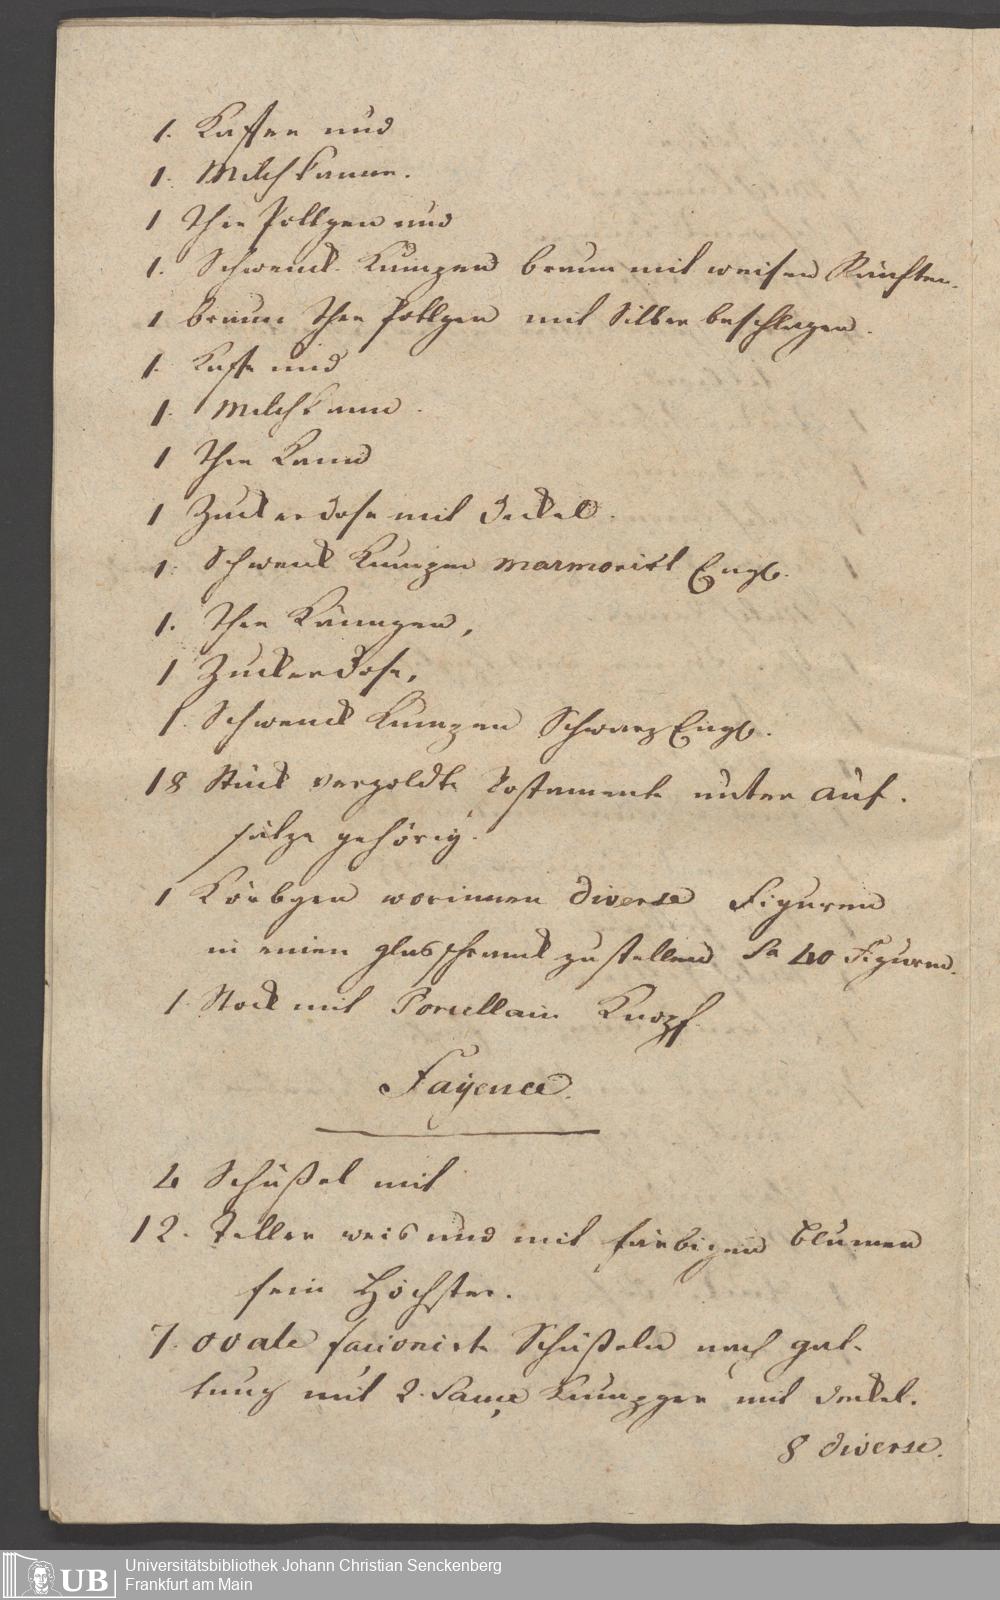 1. Kaffee und
1. Milchkanne.
1 Thee Pottgen und
1. Schwenck Kumpen braun mit weisen
1 braun Thee Pottgen mit Silber beschlagen.
1. Kaffe und
1. Milchkann.
1 Thee Kann
1 Zuckerdose mit Deckel.
1. Schwenk Kumpen marmorirt Engl.
1. Thee Känngen,
1 Zuckerdose,
1. Schwenck Kumpen Schwarz Engl.
18 Stück vergoldte Postamente unter Auf-
sätze gehörig.
1 Körbgen worinnen diverse Figuren
in einen glasschranck zu stellen Sa 40 Figuren.
1 Stock mit Porcellain Knopf.
Fayence.
4 Schüßel mit
12. Teller weis und mit färbigen Blumen
fein Höchster.
7. ovale facionirte Schüßeln nach gat-
tung mit 2. Kumpgen mit Deckel.
8 diverse.
Universitätsbibliothek Johann Christian Senckenberg
Frankfurt am Main
UB